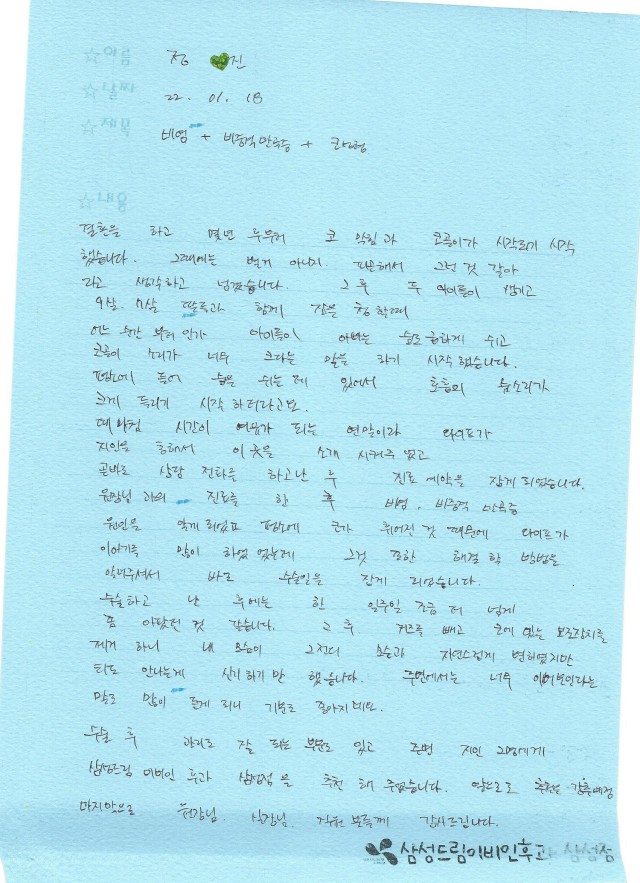 정 💚진
22. 01. 18
비염 + 비중격만곡증 + 코성형
결혼을 하고 몇년 후부터 코 막힘과 코골이가 시작되기 시작
했습니다. 그때에는 별거 아니지 피곤해서 그런 것 같아
라고 생각하고 넘겼습니다. 그 후 두 아이들이 생기고
9살. 7살 딸들과 함께 잠을 청할때
어느 순간 부터 인가 아이들이 아빠는 숨도 급하게 쉬고
코골이 소리가 너무 크다는 말을 하기 시작했습니다.
평소에 들어 숨을 쉬는 데 있어서 호흡의 숨소리가
크게 들리기 시작 하더라고요.
때마침 시간이 여유가 되는 연말이라 와이프가
지인을 통해서 이 곳을 소개 시켜주었고
곧바로 상담 전화를 하고난 후 진료 예약을 잡게 되었습니다.
원장님 과의 진료를 한 후 비염, 비중격 만곡증
원인을 알게 되었고 평소에 코가 휘어진 것 때문에 와이프가
이야기를 많이 하였었는데 그것 또한 해결 할 방법을
알려주셔서 바로 수술일을 잡게 되었습니다.
수술하고 난 후에는 한 일주일 조금 더 넘게
좀 아팠던 것 같습니다. 그 후 거즈를 빼고 코에 있는 보호장치를
제거 하니 내 모습이 그전의 모습과 자연스럽게 변하였지만
티도 안나는게 신기하기만 했습니다. 주변에서는 너무 이뻐보인다는
말도 많이 듣게 되니 기분도 좋아지네요.
수술 후 관리도 잘 되는 부분도 있고 주변 지인 2명에게
삼성드림 이비인 후과 삼성점 을 추천 해 주었습니다. 앞으로도 추천은 강추예정
마지막으로 원장님, 실장님, 직원 분들께 감사드립니다.
삼성드림이비인후과 삼성점